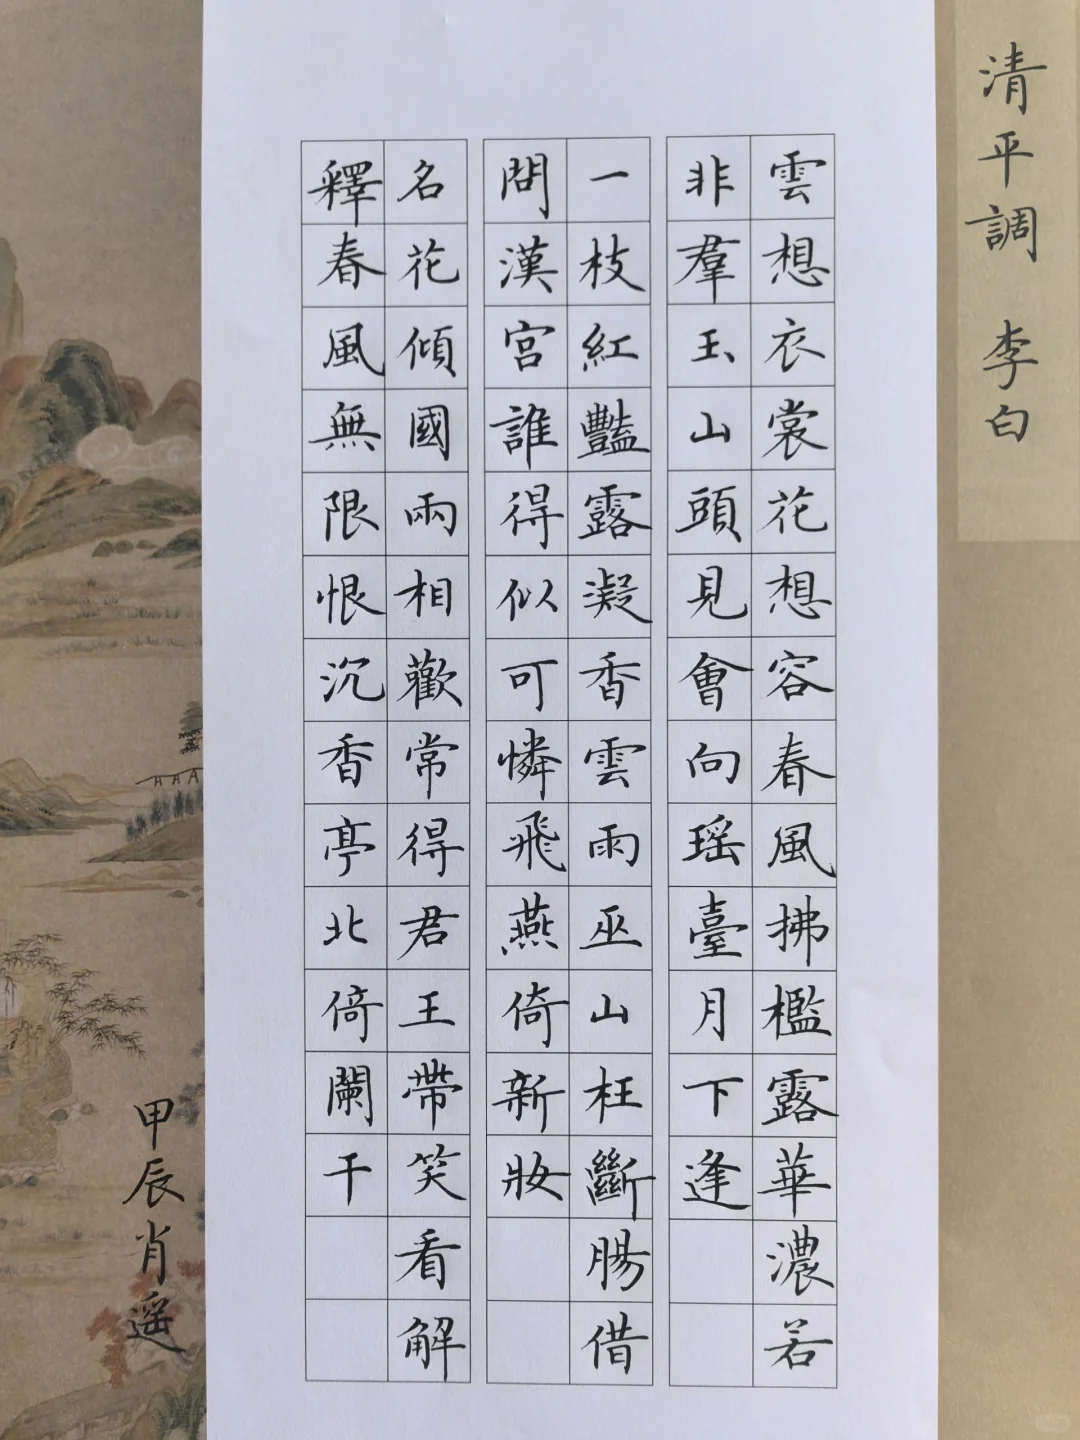 清平調 李白
雲想衣裳花想容春風拂檻露華濃若
非羣玉山頭見會向瑶臺月下逢
一枝紅豔露凝香雲雨巫山枉斷腸借
問漢宮誰得似可憐飛燕倚新妝
名花傾國兩相歡常得君王帶笑看解
釋春風無限恨沉香亭北倚闌干
甲辰肖遥